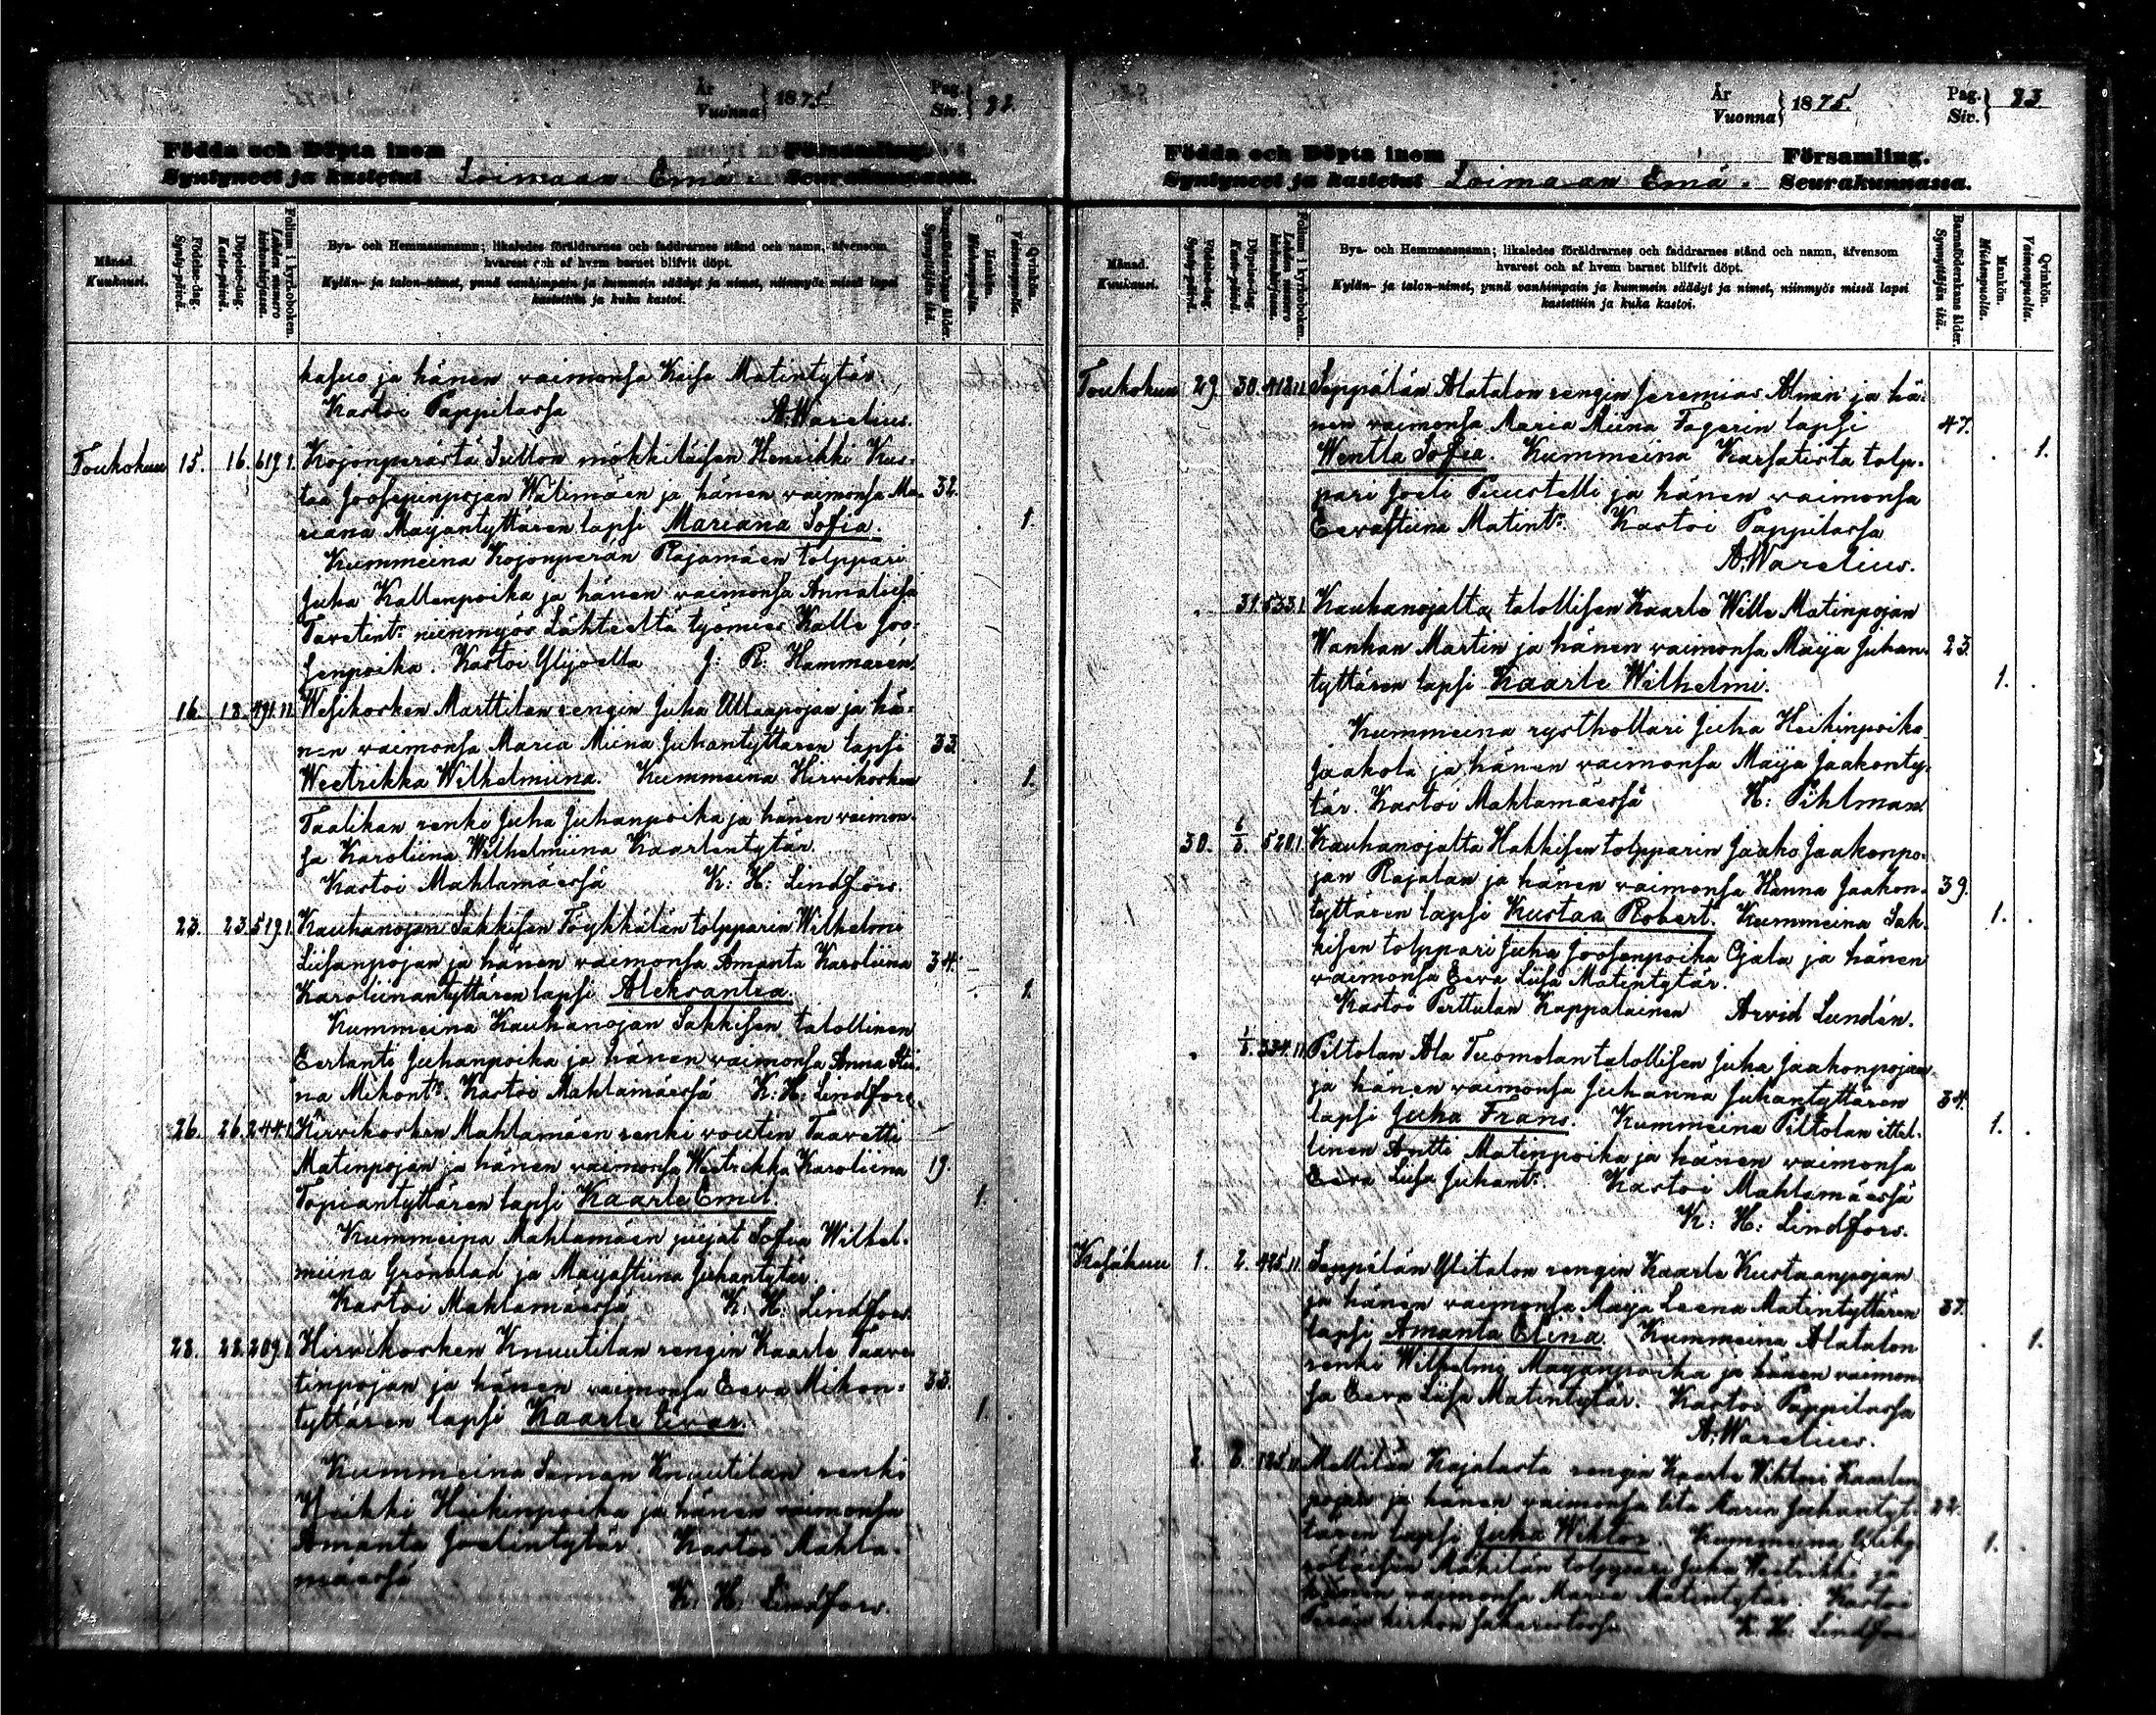 År
Vuonna } 1875
Pag.
Siv. }
Födda och Döpta inom Församling.
Syntyneet ja kastetut Loimaan Emä- Seurakunnassa.
Månad.
Kuukausi.
Födelse-dag.
Synty-päivä.
Döpelse-dag.
Kaste-päivä.
Folium i kyrkoboken.
Lehden numero
kirkonkirjassa.
Bys- och Hemmansnamn; likaledes föräldrarnes och faddrarnes stånd och namn, äfvensom
hvarest och af hvem barnet blifvit döpt.
Kylän- ja talon-nimet, ynnä vanhimpain ja kummein säädyt ja nimet, niinmyös missä lapsi
kastettiin ja kuka kastoi.
Barnföderskans ålder.
Synnyttäjän ikä.
Mankön.
Miehenpuolta.
Qvinkön.
Vaimonpuolta.
ja hänen vaimonsa Kaisa Matintytär
Kastoi Pappilassa A. Warelius.
Toukokuu 15. 16. 619.I. Kojonperästä Sutton mökkiläisen Henrikki Kus-
taa Joosepinpojan Wätimäen ja hänen vaimonsa Ma- 32.
riana Maijantyttären lapsi Mariana Sofia. 1.
Kummeina Kojonperän Rajamäen tolppari
Juha Kallenpoika ja hänen vaimonsa Annaliisa
Tavetint:r niinmyös Lähteeltä työmies Kalle Joo-
senpoika. Kastoi Ylijoella J: R: Hammarén.
16. 18. 491.II. Wesikosken Marttilan rengin Juha Ullanpojan ja hä-
nen vaimonsa Maria Miina Juhantyttären lapsi 33.
Weetrikka Wilhelmiina. Kummeina Hirvikosken 1.
Taalikan renki Juha Juhanpoika ja hänen vaimon-
sa Karoliina Wilhelmiina Kaarlentytär.
Kastoi Mahlamäessä K: H: Lindfors.
23. 23. 519.I. Kauhanojan Sakkisen Töykkälän tolpparin Wilhelmi
Liisanpojan ja hänen vaimonsa Amanta Karoliina 34.
Karoliinantyttären lapsi Aleksantra. 1.
Kummeina Kauhanojan Sakkisen talollinen
Eerlanti Juhanpoika ja hänen vaimonsa Anna Stii-
na Mikont:r. Kastoi Mahlamäessä K: H: Lindfors.
26. 26. 244.I. Hirvikosken Mahlamäen renki voutin Taavetti
Matinpojan ja hänen vaimonsa Weetrikka Karoliina 19.
Topiantyttären lapsi Kaarle Emil. 1.
Kummeina Mahlamäen piijat Sofia Wilhel-
miina Grönblad ja Maijastiina Juhantytär.
Kastoi Mahlamäessä K: H: Lindfors.
28. 28. 209.I. Hirvikosken Knuutilan rengin Kaarle Taave-
tinpojan ja hänen vaimonsa Eeva Mikon- 33.
tyttären lapsi Kaarle Iivar. 1.
Kummeina Saman Knuutilan renki
Heikki Heikinpoika ja hänen vaimonsa
Amanta Joelintytär. Kastoi Mahla-
mäessä
K: H: Lindfors.
År
Vuonna } 1875.
Pag.
Siv. } 93
Födda och Döpta inom Församling.
Syntyneet ja kastetut Loimaan Emä- Seurakunnassa.
Månad.
Kuukausi.
Födelse-dag.
Synty-päivä.
Döpelse-dag.
Kaste-päivä.
Folium i kyrkoboken.
Lehden numero
kirkonkirjassa.
Bys- och Hemmansnamn; likaledes föräldrarnes och faddrarnes stånd och namn, äfvensom
hvarest och af hvem barnet blifvit döpt.
Kylän- ja talon-nimet, ynnä vanhimpain ja kummein säädyt ja nimet, niinmyös missä lapsi
kastettiin ja kuka kastoi.
Barnföderskans ålder.
Synnyttäjän ikä.
Mankön.
Miehenpuolta.
Qvinkön.
Vaimonpuolta.
Toukokuu 29. 30. 418.II. Seppälän Alatalon rengin Jeremias Almin ja hä-
nen vaimonsa Maria Miina Fagerin lapsi 47.
Wentla Sofia. Kummeina Karsatista tolp- 1.
pari Joeli Puustelli ja hänen vaimonsa
Eevastiina Matint:r. Kastoi Pappilassa
A. Warelius.
31. 533.I. Kauhanojalta talollisen Kaarle Wille Matinpojan
Wanhan Martin ja hänen vaimonsa Maija Juhan- 23.
tyttären lapsi Kaarle Wilhelmi. 1.
Kummeina rysthollari Juha Heikinpoika
Jaakola ja hänen vaimonsa Maija Jaakonty-
tär. Kastoi Mahlamäessä K: Pihlman.
30. 6/6. 520.I. Kauhanojalta Hakkisen tolpparin Jaako Jaakonpo-
jan Rajalan ja hänen vaimonsa Hanna Jaakon- 39.
tyttären lapsi Kustaa Robert. Kummeina Sak- 1.
kisen tolppari Juha Joosenpoika Ojala ja hänen
vaimonsa Eeva Liisa Matintytär.
Kastoi Perttulan Kappalainen Arvid Lundén.
1/6. 334.II. Piltolan Ala Tuomolan talollisen Juha Jaakonpojan
ja hänen vaimonsa Juhanna Juhantyttären 34.
lapsi Juha Frans. Kummeina Piltolan ittel- 1.
linen Antti Matinpoika ja hänen vaimonsa
Eeva Liisa Juhant:r. Kastoi Mahlamäessä
K: H: Lindfors.
Kesäkuu 1. 2. 425.II. Seppälän Ylitalon rengin Kaarle Kustaanpojan
ja hänen vaimonsa Maija Leena Matintyttären 37.
lapsi Amanta Elina. Kummeina Alatalon 1.
renki Wilhelmi Maijanpoika ja hänen vaimon-
sa Eeva Liisa Matintytär. Kastoi Pappilassa
A. Warelius.
2. Mellilän Kajalasta rengin Kaarle Wihtori Kaarlen
pojan ja hänen vaimonsa Juhantyt- 22.
tären lapsi Juha Wihtor. Kummeina 1.
tolppari Juha Weetrikki ja
hänen vaimonsa Maria Matintytär. Kastoi
kirkon sakaristossa K. H. Lindfors